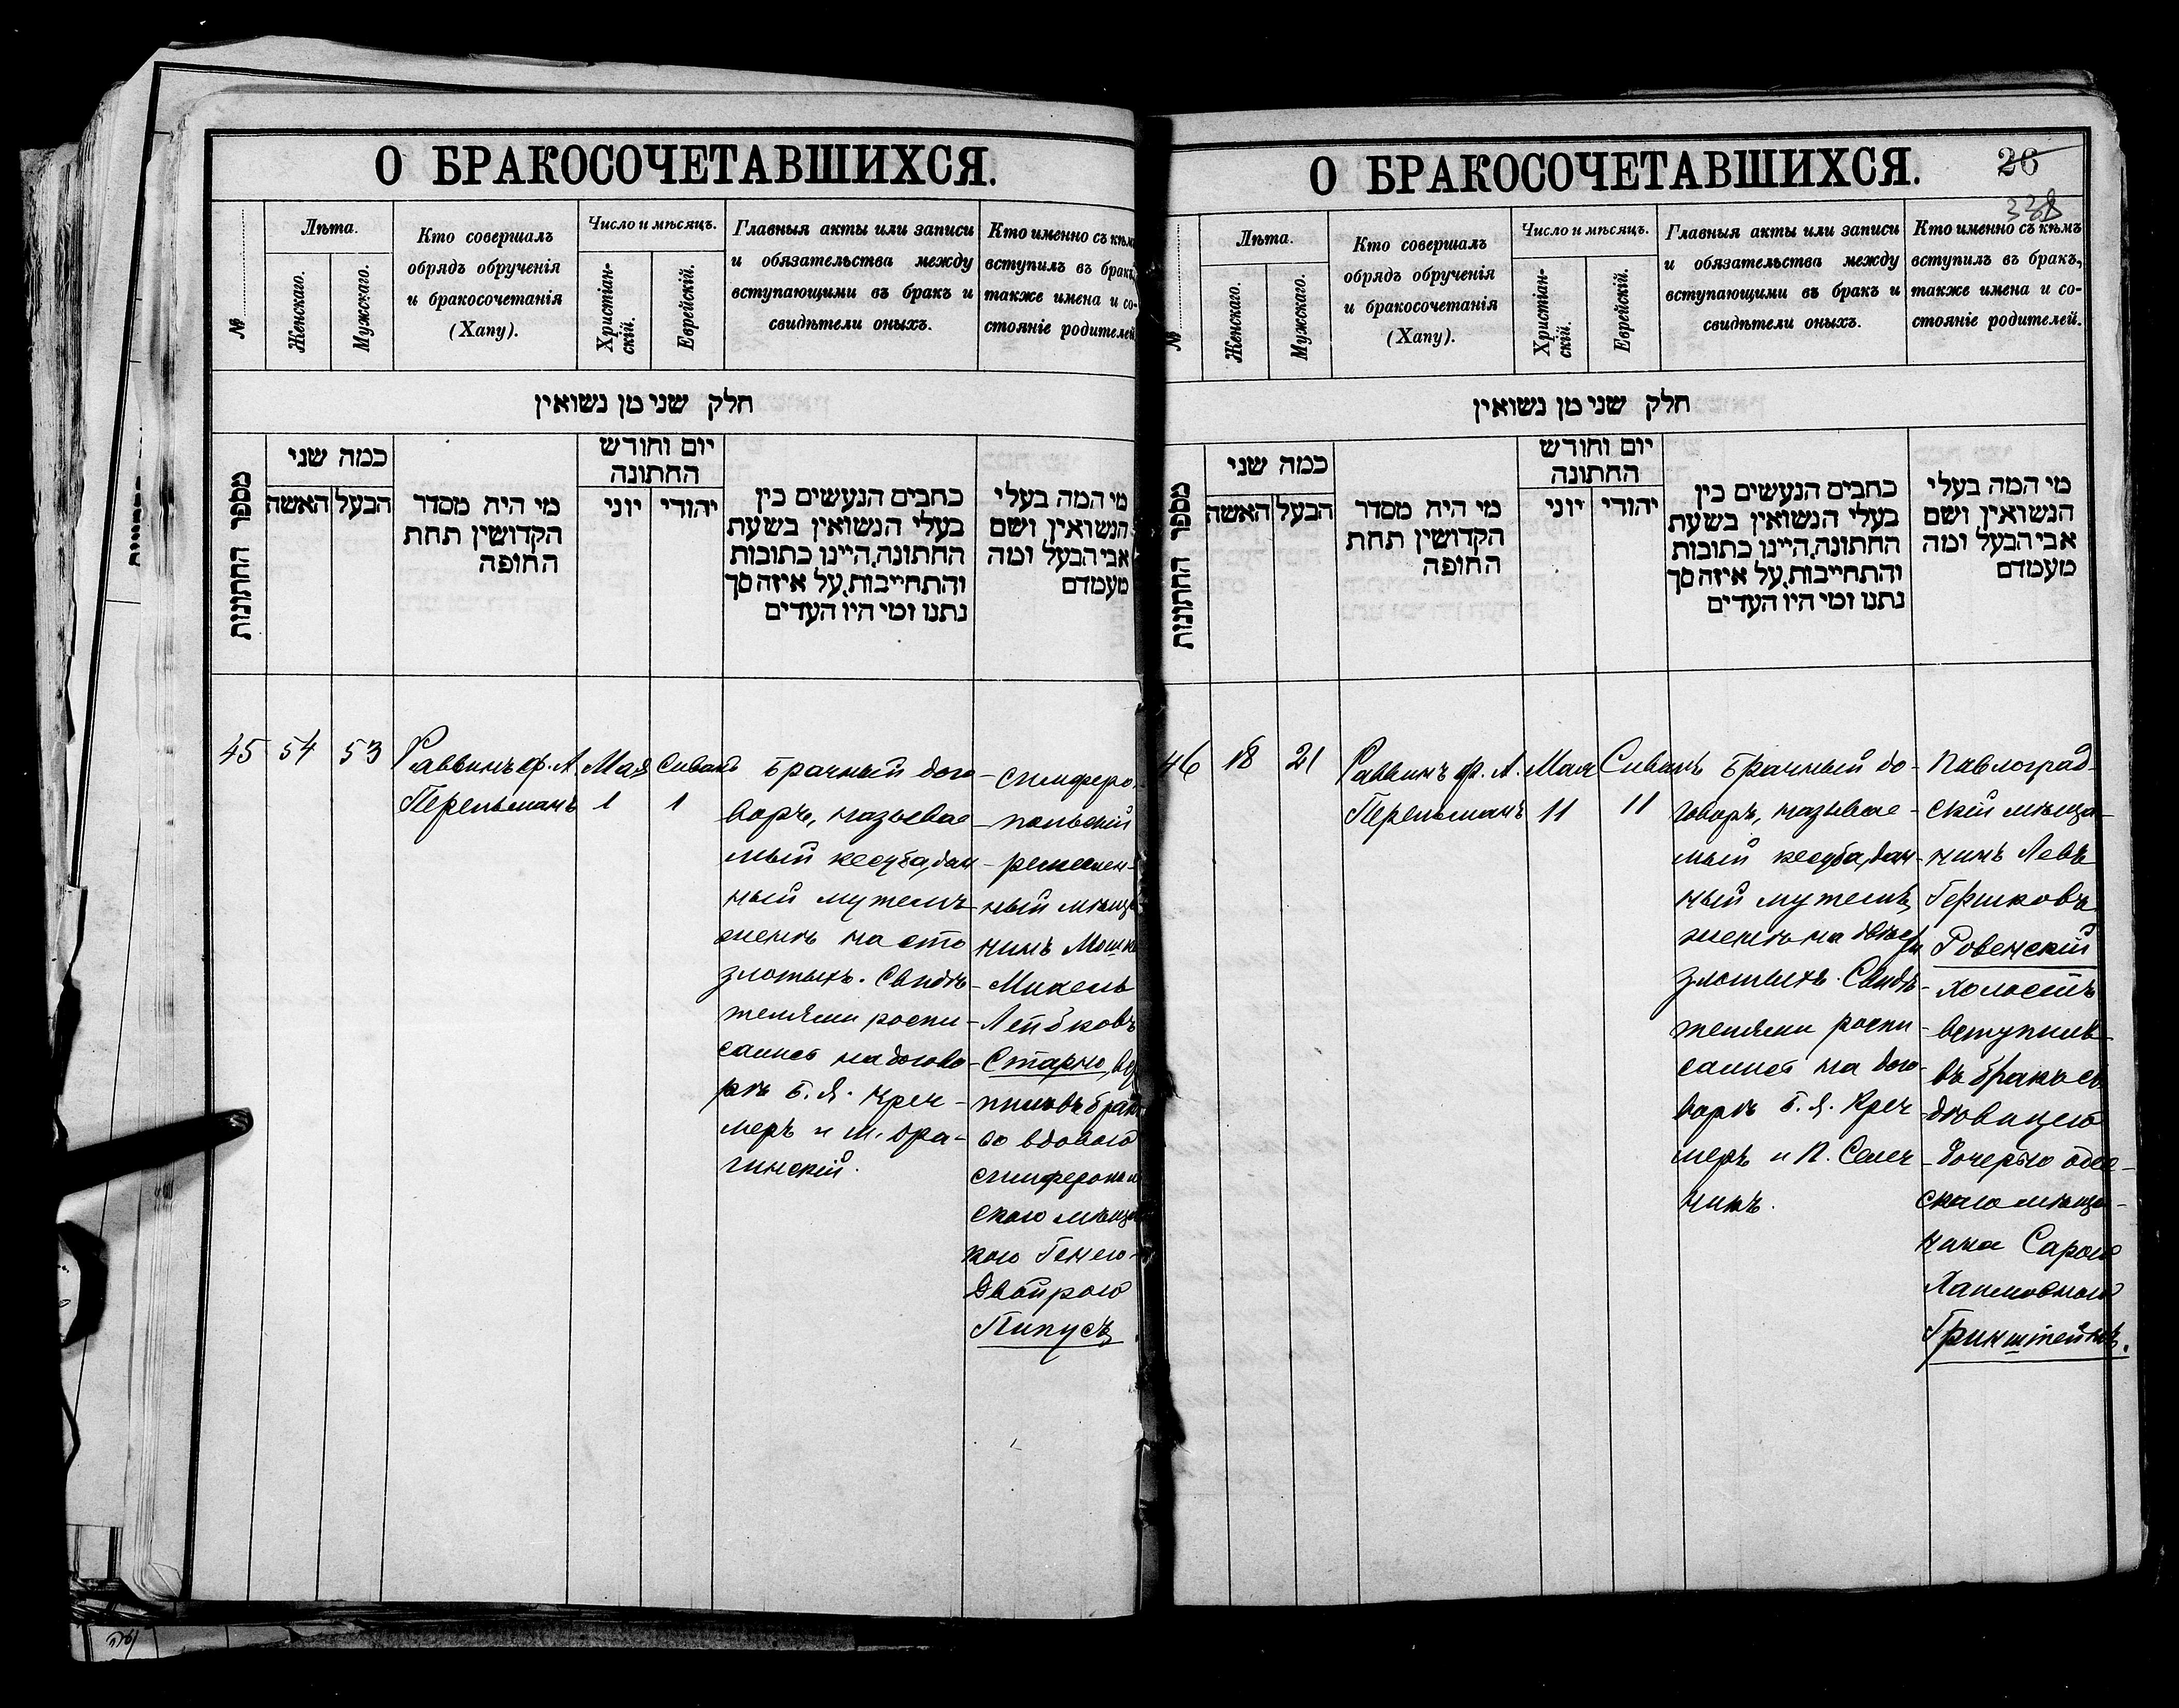 О БРАКОСОЧЕТАВШИХСЯ.
№
Лѣта.
Женскаго.
Мужскаго.
Кто совершалъ
обрядъ обрученія
и бракосочетанія
(Хапу).
Число и мѣсяцъ.
Христіан-
скій.
Еврейскій.
Главныя акты или записи
и обязательства между
вступающими въ бракъ и
свидѣтели оныхъ.
Кто именно съ кѣмъ
вступилъ въ бракъ,
также имена и со-
стояніе родителей
חלק שני מן נשואין
מספר החתונות
כמה שני
האשה
הבעל
מי היה מסדר
הקדושין תחת
החופה
יום וחודש
החתונה
יוני
יהודי
כתבים הנעשים בין
בעלי הנשואין בשעת
החתונה, היינו כתובות
והתחייבות, על איזה סך
נתנו ומי היו העדים
מי המה בעלי
הנשואין ושם
אבי הבעל ומה
מעמדם
45
54
53
Раввинъ ф. А.
Перельманъ
Мая
1
Сиванъ
1
Брачный дого-
воръ, называе-
мый кесуба, дан-
ный мужемъ
женѣ на сто
злотыхъ. Свидѣ-
телями роспи-
сались на догово-
рѣ Б. Я. Креч-
меръ и Ш. Дра-
гинскій.
Симферо-
польскій
ремеслен-
ный мѣща-
нинъ Мошко
Михель
Лейбковъ
Старно, всту-
пилъ въ бракъ
со вдовою
симферополь
скаго мѣщан
кою Генею-
Двойрою
Пипусъ.
О БРАКОСОЧЕТАВШИХСЯ.
26
338
№
Лѣта.
Женскаго.
Мужскаго.
Кто совершалъ
обрядъ обрученія
и бракосочетанія
(Хапу).
Число и мѣсяцъ.
Христіан-
скій.
Еврейскій.
Главныя акты или записи
и обязательства между
вступающими въ бракъ и
свидѣтели оныхъ.
Кто именно съ кѣмъ
вступилъ въ бракъ,
также имена и со-
стояніе родителей.
חלק שני מן נשואין
מספר החתונות
כמה שני
האשה
הבעל
מי היה מסדר
הקדושין תחת
החופה
יום וחודש
החתונה
יוני
יהודי
כתבים הנעשים בין
בעלי הנשואין בשעת
החתונה, היינו כתובות
והתחייבות, על איזה סך
נתנו ומי היו העדים
מי המה בעלי
הנשואין ושם
אבי הבעל ומה
מעמדם
46
18
21
Раввинъ ф. А.
Перельманъ
Мая
11
Сиванъ
11
Брачный до-
говоръ, называе-
мый кесуба, дан-
ный мужемъ
женѣ на двѣсти
злотыхъ. Свидѣ-
телями роспи-
сались на дого-
ворѣ Б. Я. Креч
меръ и П. Селеч
никъ.
Павлоград-
скій мѣща-
нинъ Левъ
Гершковъ
Ровенскій
холостъ
вступилъ
въ бракъ съ
дѣвицею
дочерью одес-
скаго мѣща-
нина Сарою
Хаимовною
Гринштейнъ.